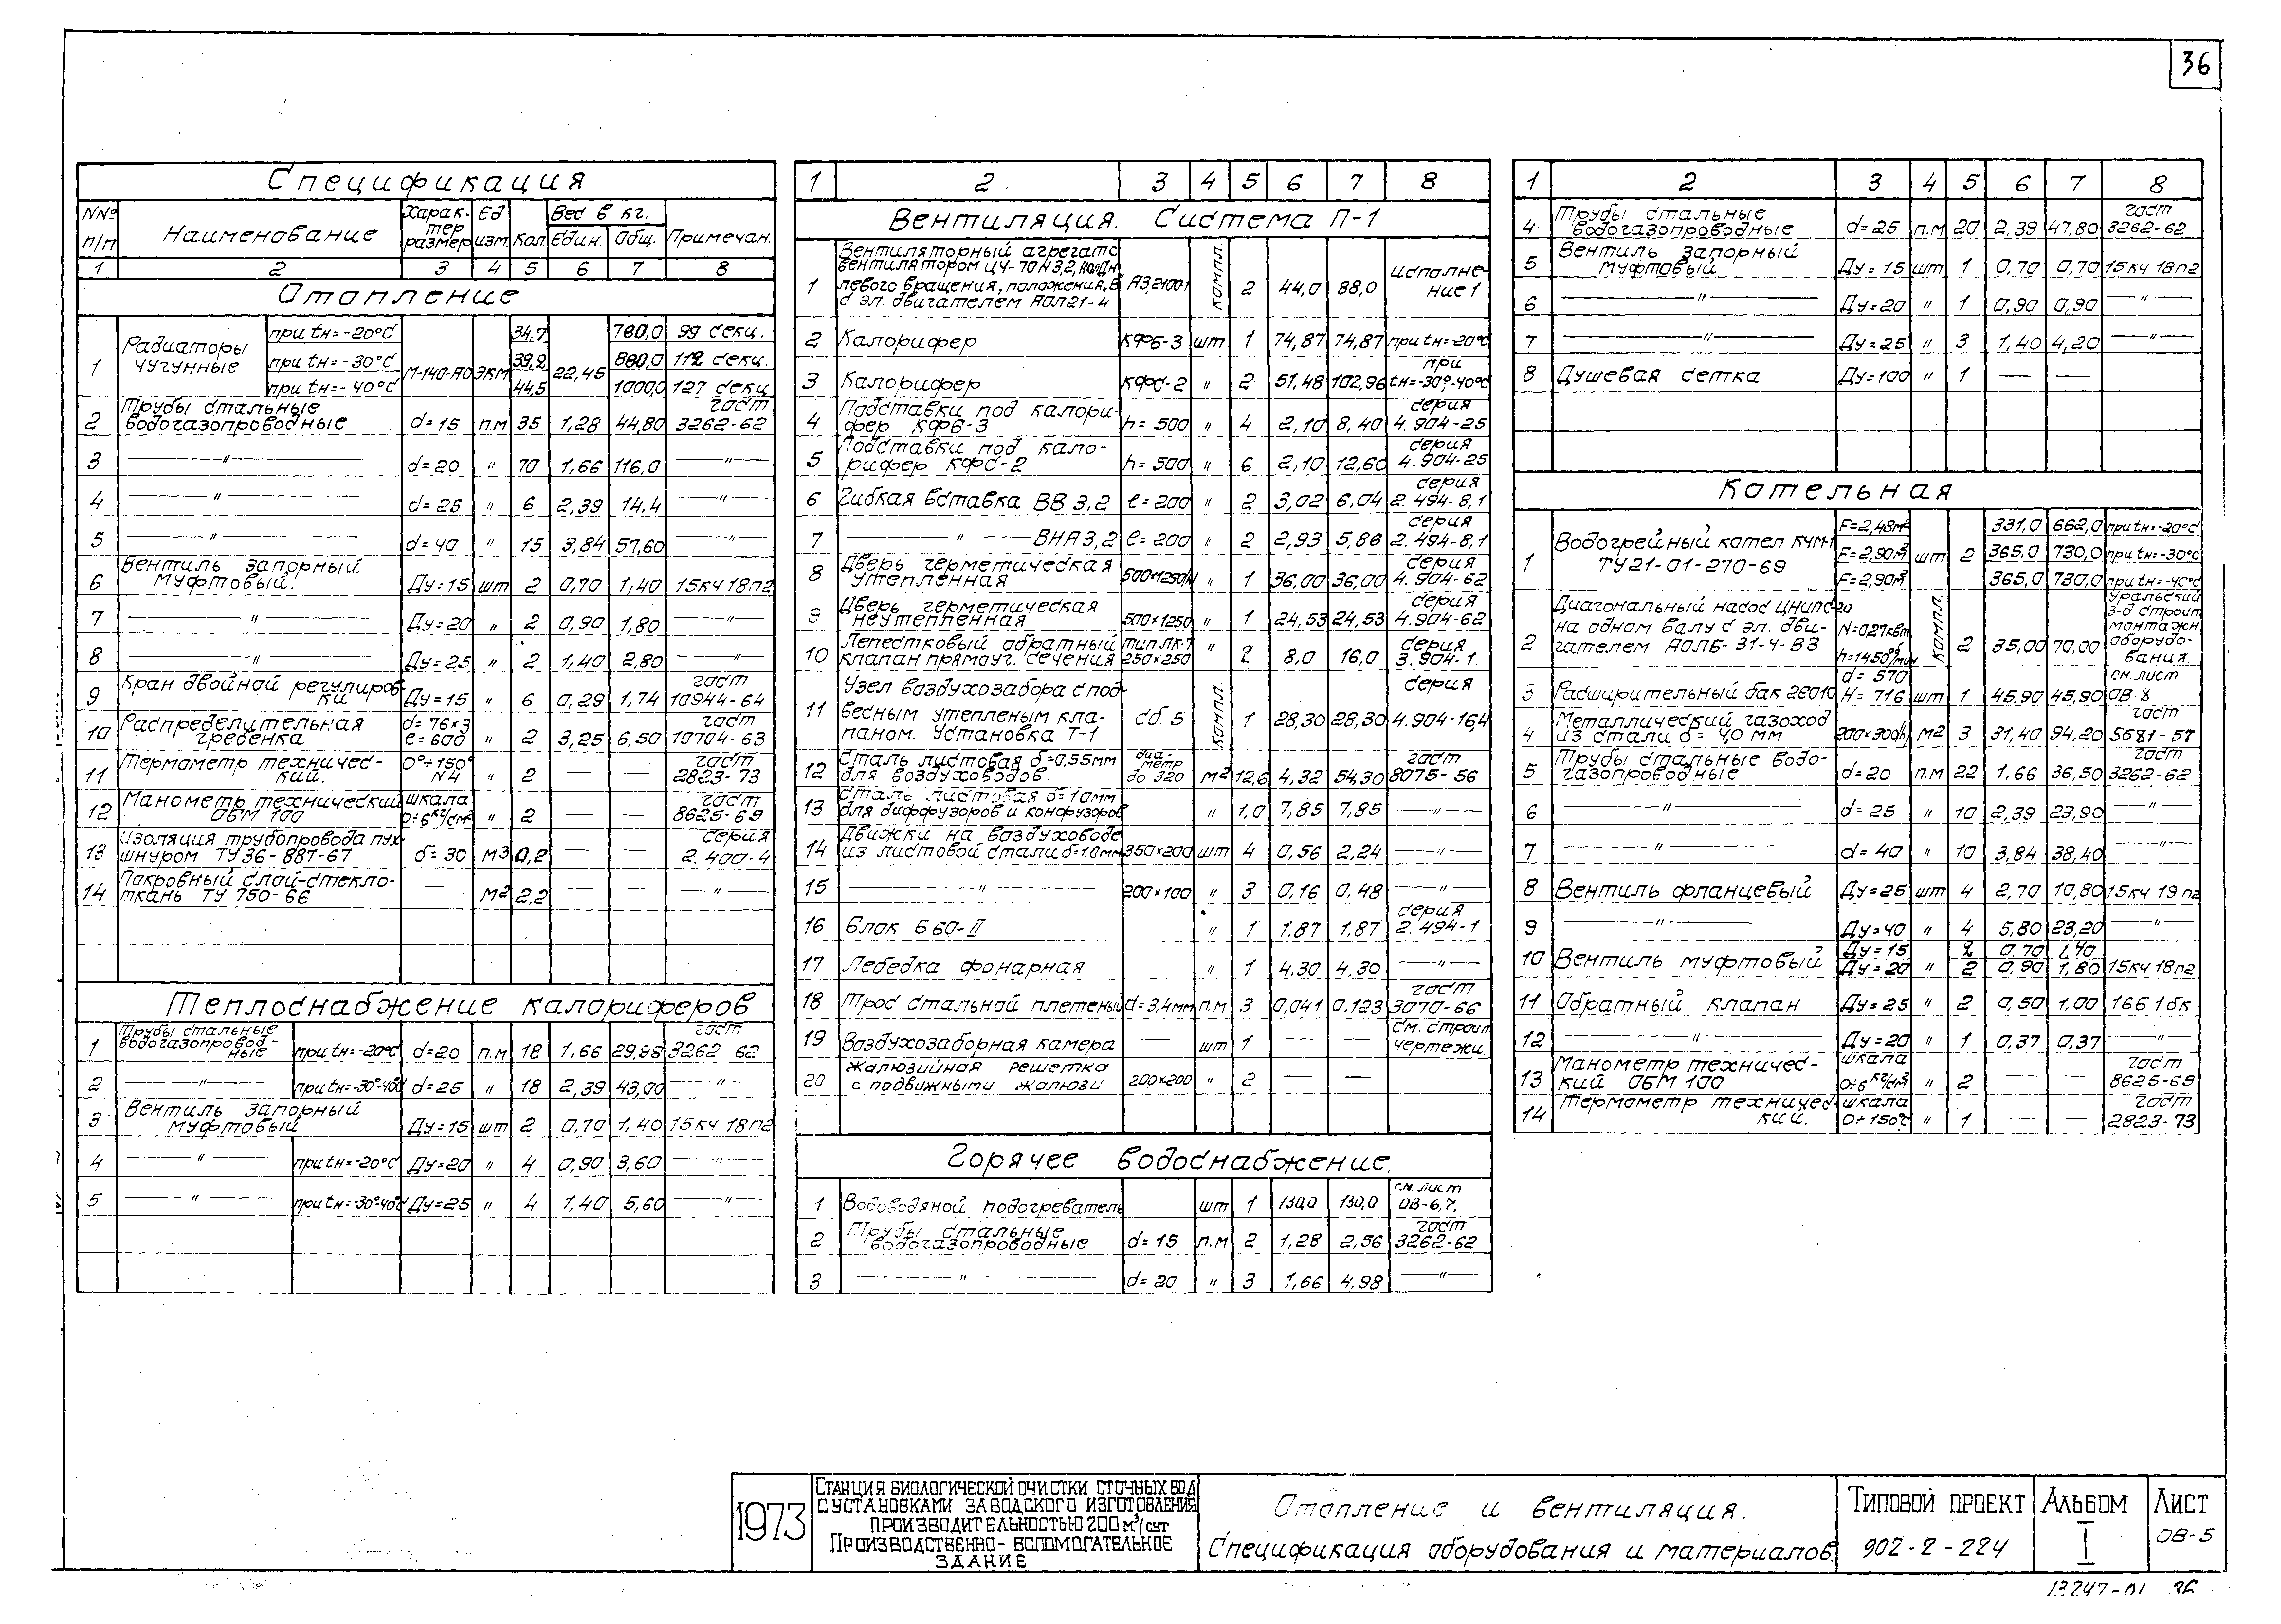 36
Спецификация
NNº п/п | Наименование | Харак-тер размер | Ед изм. | Кол. | Вес в кг. Един. | Общ. | Примечан.
1 | 2 | 3 | 4 | 5 | 6 | 7 | 8
Отопление
1 | Радиаторы чугунные | при tн=-20°С | М-140-АО | ЭКМ | 34,7 | 22,45 | 780,0 | 99 секц.
при tн=-30°С | 39,2 | 880,0 | 112 секц.
при tн=-40°С | 44,5 | 1000,0 | 127 секц
2 | Трубы стальные водогазопроводные | d=15 | п.м | 35 | 1,28 | 44,80 | гост 3262-62
3 | —"— | d=20 | " | 70 | 1,66 | 116,0 | —"—
4 | —"— | d=25 | " | 6 | 2,39 | 14,4 | —"—
5 | —"— | d=40 | " | 15 | 3,84 | 57,60 | —"—
6 | Вентиль запорный муфтовый. | Ду=15 | шт | 2 | 0,70 | 1,40 | 15кч 18п2
7 | —"— | Ду=20 | " | 2 | 0,90 | 1,80 | —"—
8 | —"— | Ду=25 | " | 2 | 1,40 | 2,80 | —"—
9 | Кран двойной регулировки | Ду=15 | " | 6 | 0,29 | 1,74 | гост 10944-64
10 | Распределительная гребенка | d=76×3 ℓ=600 | " | 2 | 3,25 | 6,50 | гост 10704-63
11 | Термометр техничес-кий. | 0°÷150° N4 | " | 2 | — | — | гост 2823-73
12 | Манометр технический ОБМ 100 | шкала 0÷6кг/см² | " | 2 | — | — | гост 8625-69
13 | Изоляция трубопровода пух-шнуром ТУ36-887-67 | δ=30 | м3 | 0,2 | — | — | серия 2.400-4
14 | Покровный слой-стекло-ткань ТУ 750-66 | — | м2 | 2,2 | — | — | —"—
Теплоснабжение калориферов
1 | Трубы стальные водогазопровод-ные | при tн=-20°С | d=20 | п.м | 18 | 1,66 | 29,88 | гост 3262-62
2 | —"— | при tн=-30°-40°С | d=25 | " | 18 | 2,39 | 43,00 | —"—
3 | Вентиль запорный муфтовый | Ду=15 | шт | 2 | 0,70 | 1,40 | 15кч 18п2
4 | —"— | при tн=-20°С | Ду=20 | " | 4 | 0,90 | 3,60 | —"—
5 | —"— | при tн=-30°-40°С | Ду=25 | " | 4 | 1,40 | 5,60 | —"—
1 | 2 | 3 | 4 | 5 | 6 | 7 | 8
Вентиляция. Система П-1
1 | Вентиляторный агрегат с вентилятором Ц4-70 N3,2, левого вращения, положения, В с эл. двигателем АОЛ21-4 | А3,2100-1 | компл. | 2 | 44,0 | 88,0 | исполне-ние 1
2 | Калорифер | КФБ-3 | шт | 1 | 74,87 | 74,87 | при tн=-20°С
3 | Калорифер | КФС-2 | " | 2 | 51,48 | 102,96 | при tн=-30°-40°С
4 | Подставки под калори-фер КФБ-3 | h=500 | " | 4 | 2,10 | 8,40 | серия 4.904-25
5 | Подставки под кало-рифер КФС-2 | h=500 | " | 6 | 2,10 | 12,60 | серия 4.904-25
6 | Гибкая вставка ВВ 3,2 | ℓ=200 | " | 2 | 3,02 | 6,04 | серия 2.494-8,1
7 | —"— ВНА3,2 | ℓ=200 | " | 2 | 2,93 | 5,86 | серия 2.494-8,1
8 | Дверь герметическая утепленная | 500×1250/h | " | 1 | 36,00 | 36,00 | серия 4.904-62
9 | Дверь герметическая неутепленная | 500×1250 | " | 1 | 24,53 | 24,53 | серия 4.904-62
10 | Лепестковый обратный клапан прямоуг. сечения | тип ЛК-7 250×250 | " | 2 | 8,0 | 16,0 | серия 3.904-1.
11 | Узел воздухозабора с под-весным утепленым кла-паном. Установка Т-1 | сб. 5 | компл. | 1 | 28,30 | 28,30 | серия 4.904-16,4
12 | Сталь листовая δ=0,55мм для воздуховодов. | диа-метр до 320 | м2 | 12,6 | 4,32 | 54,30 | гост 8075-56
13 | Сталь листовая δ=1,0мм для диффузоров и конфузоров | " | 1,0 | 7,85 | 7,85 | —"—
14 | Движки на воздуховоде из листовой стали δ=1.0мм | 350×200 | шт | 4 | 0,56 | 2,24 | —"—
15 | —"— | 200×100 | " | 3 | 0,16 | 0,48 | —"—
16 | Блок Б60-II | " | 1 | 1,87 | 1,87 | серия 2.494-1
17 | Лебедка фонарная | " | 1 | 4,30 | 4,30 | —"—
18 | Трос стальной плетеный | d=3,4мм | п.м | 3 | 0,041 | 0.123 | гост 3070-66
19 | Воздухозаборная камера | — | шт | 1 | — | — | см. строит чертежи.
20 | Жалюзийная решетка с подвижными жалюзи | 200×200 | " | 2 | — | —
Горячее водоснабжение.
1 | Водоводяной подогреватель | шт | 1 | 130,0 | 130,0 | см. лист ОВ-6,7.
2 | Трубы стальные водогазопроводные | d=15 | п.м | 2 | 1,28 | 2,56 | гост 3262-62
3 | —"— | d=20 | " | 3 | 1,66 | 4,98 | —"—
1 | 2 | 3 | 4 | 5 | 6 | 7 | 8
4 | Трубы стальные водогазопроводные | d=25 | п.м | 20 | 2,39 | 47,80 | гост 3262-62
5 | Вентиль запорный муфтовый | Ду=15 | шт | 1 | 0,70 | 0,70 | 15кч 18п2
6 | —"— | Ду=20 | " | 1 | 0,90 | 0,90 | —"—
7 | —"— | Ду=25 | " | 3 | 1,40 | 4,20 | —"—
8 | Душевая сетка | Ду=100 | " | 1 | — | —
Котельная
1 | Водогрейный котел КЧМ-1 ТУ21-01-270-69 | F=2,48м² | шт | 2 | 331,0 | 662,0 | при tн=-20°С
F=2,90м² | 365,0 | 730,0 | при tн=-30°С
F=2,90м² | 365,0 | 730,0 | при tн=-40°С
2 | Диагональный насос ЦНИПС-20 на одном валу с эл. дви-гателем АОЛБ-31-4-В3 | N=0,27квт n=1450об/мин | компл. | 2 | 35,00 | 70,00 | Уральский з-д строит монтажн оборудо-вания.
3 | Расширительный бак 2Е010 | d=570 Н=716 | шт | 1 | 45,90 | 45,90 | см. лист ОВ 8
4 | Металлический газоход из стали δ=4,0 мм | 200×300/h | м2 | 3 | 31,40 | 94,20 | гост 5681-57
5 | Трубы стальные водо-газопроводные | d=20 | п.м | 22 | 1,66 | 36,50 | гост 3262-62
6 | —"— | d=25 | " | 10 | 2,39 | 23,90 | —"—
7 | —"— | d=40 | " | 10 | 3,84 | 38,40 | —"—
8 | Вентиль фланцевый | Ду=25 | шт | 4 | 2,70 | 10,80 | 15кч 19п2
9 | —"— | Ду=40 | " | 4 | 5,80 | 23,20 | —"—
10 | Вентиль муфтовый | Ду=15 | 2 | 0,70 | 1,40
Ду=20 | " | 2 | 0,90 | 1,80 | 15кч 18п2
11 | Обратный клапан | Ду=25 | " | 2 | 0,50 | 1,00 | 16б 1бк
12 | —"— | Ду=20 | " | 1 | 0,37 | 0,37 | —"—
13 | Манометр техничес-кий ОБМ 100 | шкала 0÷6кг/см² | " | 2 | — | — | гост 8625-69
14 | Термометр техничес-кий. | шкала 0÷150°С | " | 1 | — | — | гост 2823-73
1973
Станция биологической очистки сточных вод
с установками заводского изготовления
производительностью 200 м³/сут
Производственно-вспомогательное
здание
Отопление и вентиляция.
Спецификация оборудования и материалов.
Типовой проект
902-2-224
Альбом
I
Лист
ОВ-5
13247-01 36